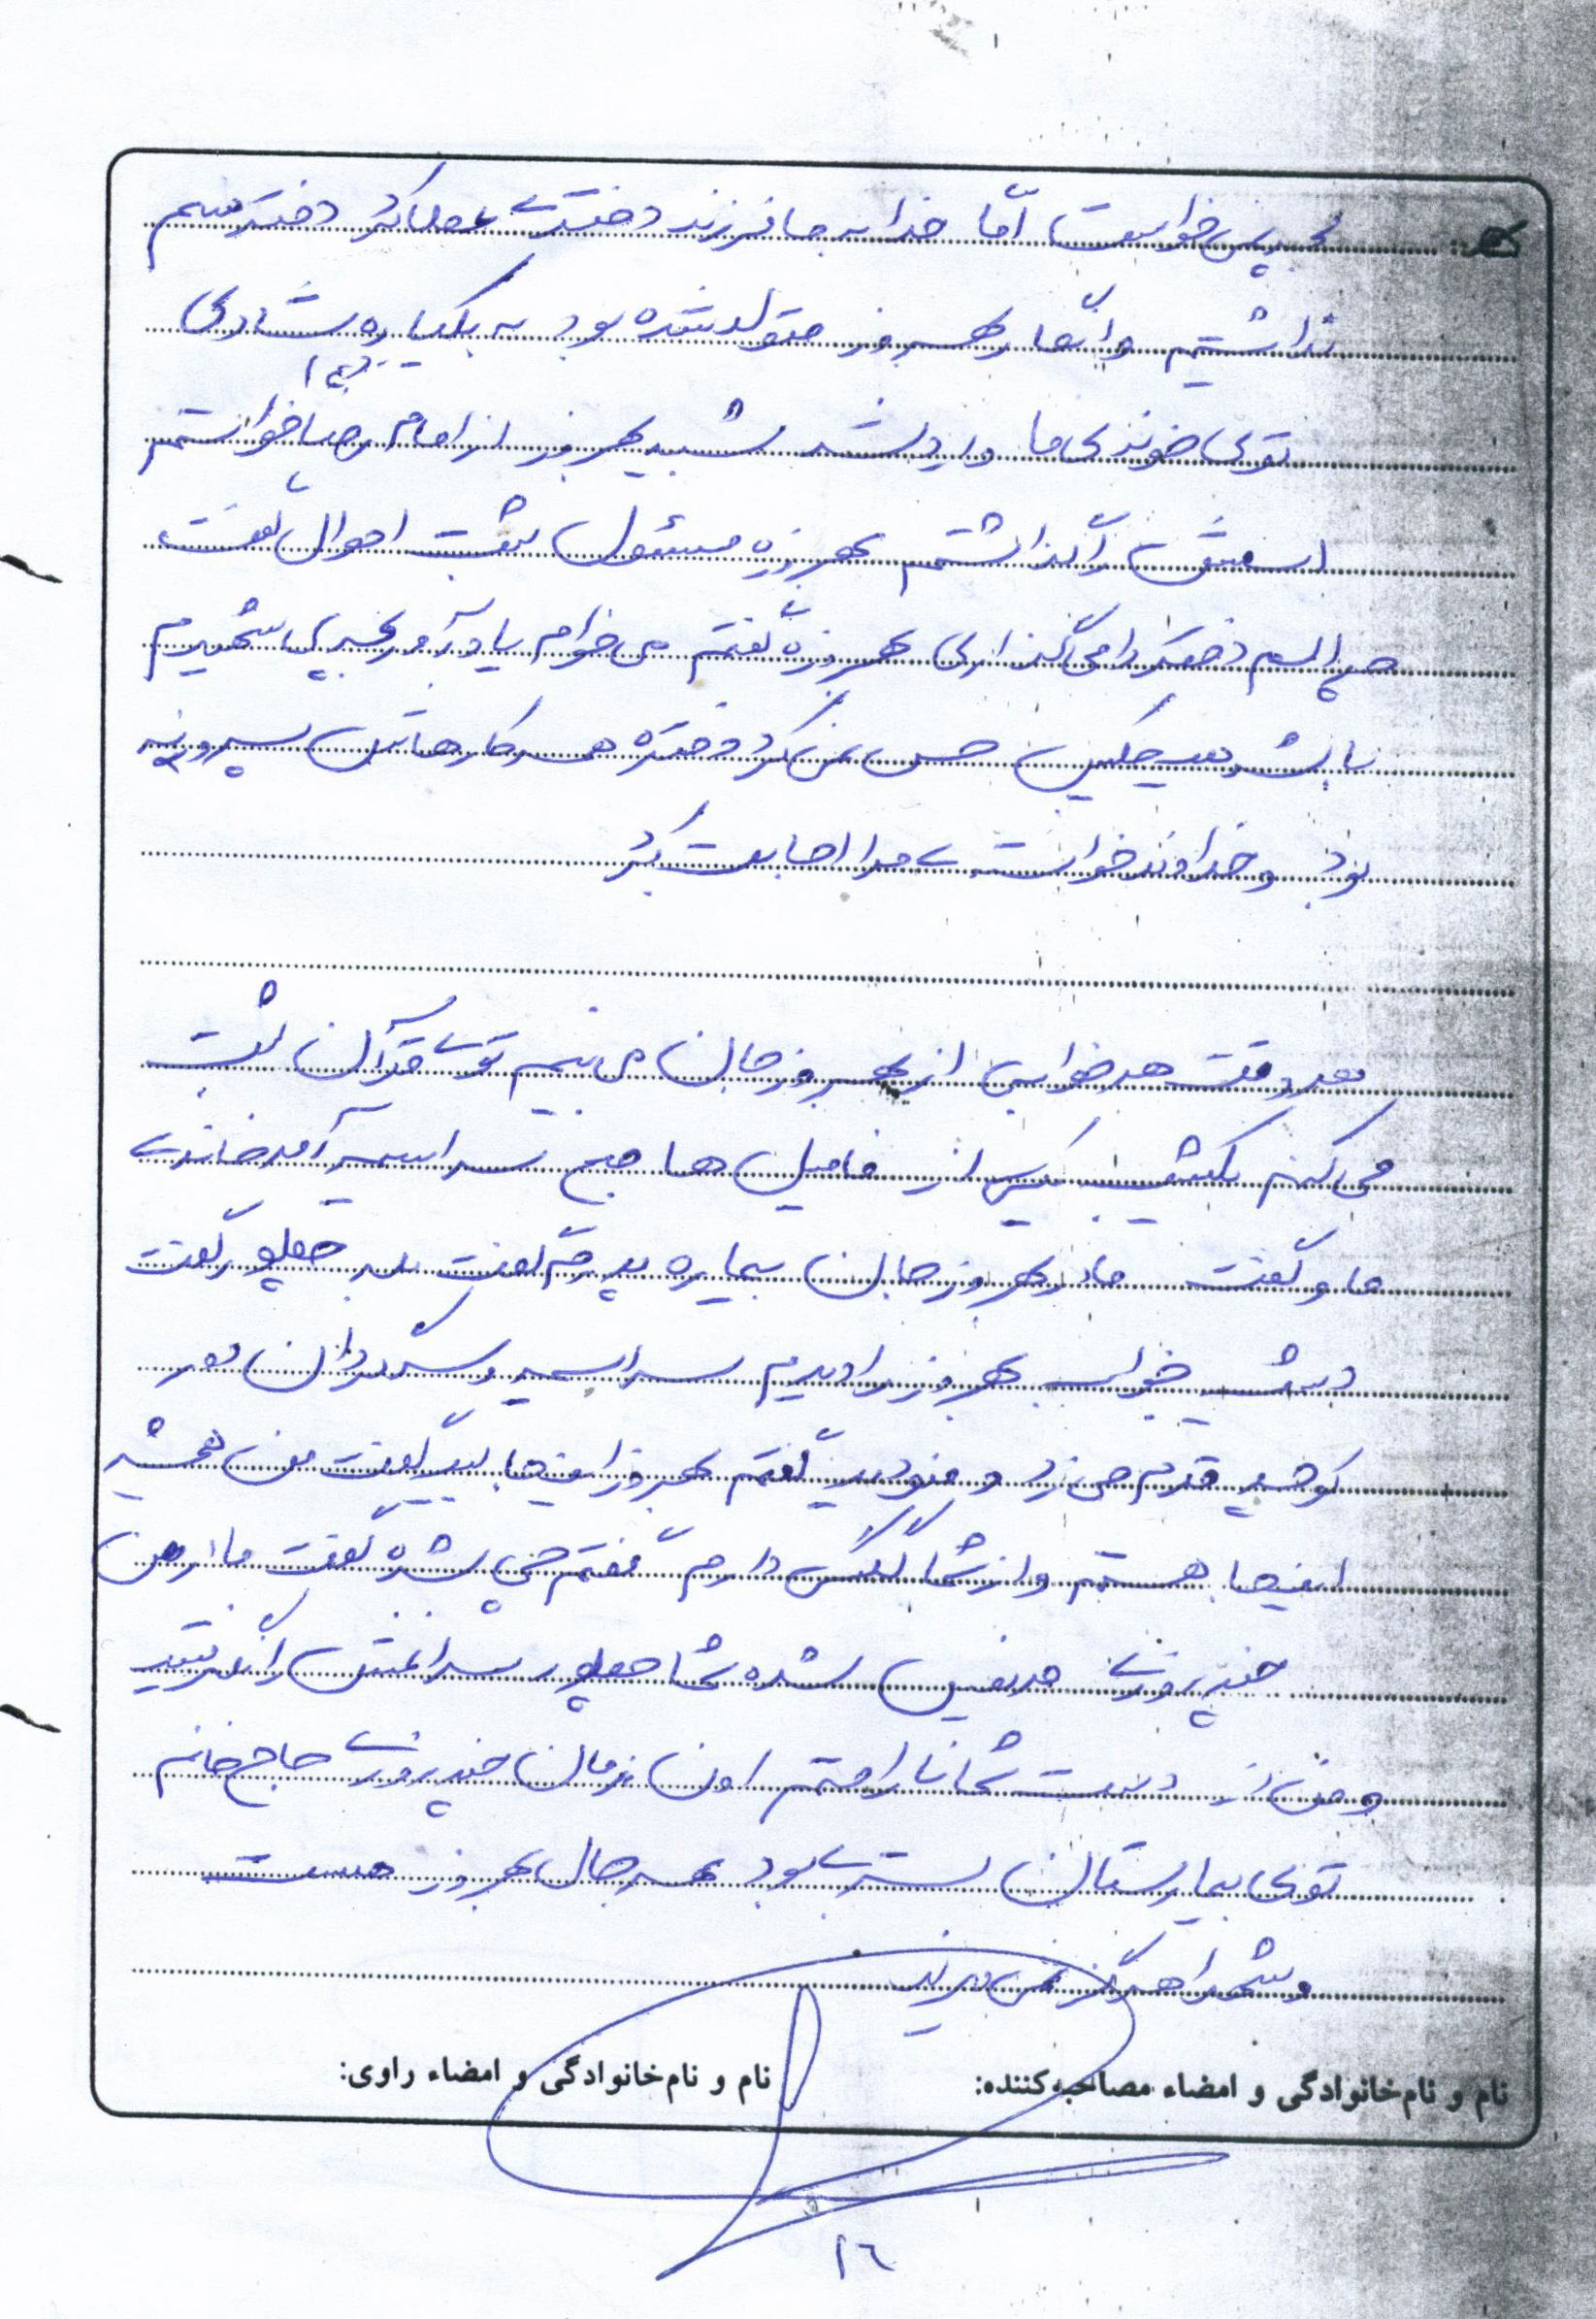 بچه پسر خواست امّا خدا به ما فرزند دختری عطا کرد دختر هم
نداشتیم و انگار بهروز متولد شده بود به یکباره شادی
توی خونه‌ی ما وارد شد شبیه بهروز از امام رضا (ع) خواستم
اسمش را گذاشتم بهروزه مسئول ثبت احوال گفت
چه اسم دختر را می‌گذاری بهروزه گفتم می خوام یادآور بچه‌ی شهیدم
باشد هیچکس حس نمی‌کرد دختره همه کارهاش پسرونه
بود و خداوند خواسته‌ی مرا اجابت کرد
هر وقت هر خوابی از بهروز جان می بینم توی قرآن ثبت
می‌کنم یکشب یکی از فامیل ها صبح سراسیمه آمد خانه‌ی
ما و گفت مادر بهروز جان بیماره پدرم گفت بله چطور گفت
دیشب خواب بهروز را دیدم سراسیمه و سرگردان دور
کوهسر قدم می زد و گفتم بهروز اینجایی گفت من همیشه
اینجا هستم و از شما گله دارم گفتم چی شده گفت مادر من
چند روزی مریض شده شما چطور سراغش را نگرفتید
و من از دست شما ناراحتم اون زمان چند روزی حاج خانم
توی بیمارستان بستری بود بهرحال بهروز هست
و شهدا هرگز نمی‌میرند
نام و نام‌خانوادگی و امضاء مصاحبه‌کننده: نام و نام‌خانوادگی و امضاء راوی:
۱۶